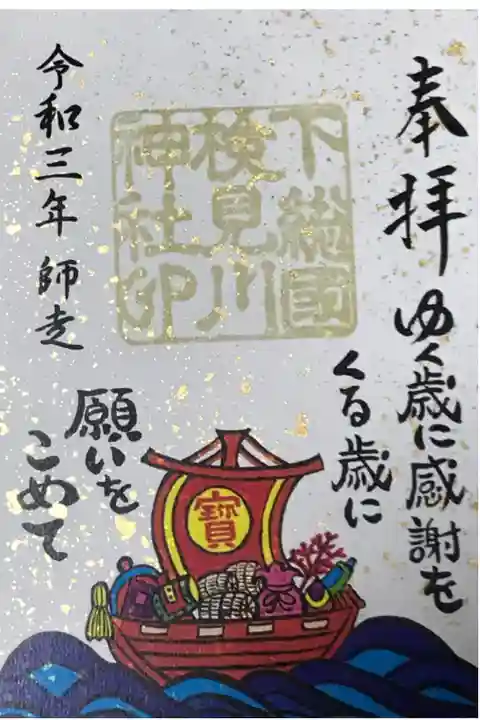 奉拝
ゆく歳に感謝を
くる歳に
願いを
こめて
下総國
検見川
神社印
令和三年 師走
寳